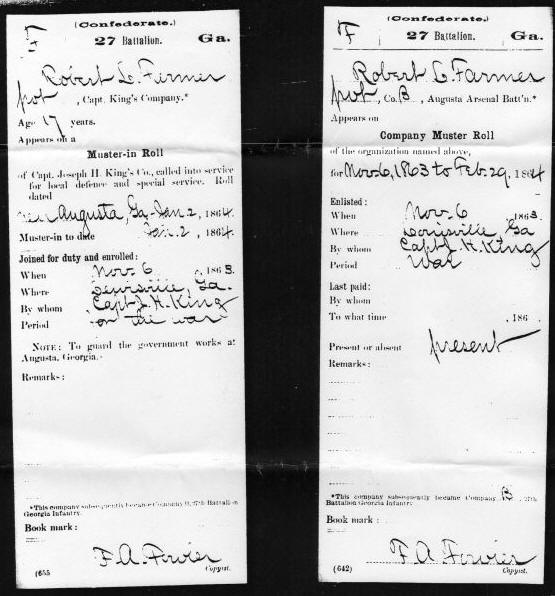 (Confederate.)
F 27 Battalion. Ga.
Robert L. Fermer
pvt, Capt. King's Company.*
Age 17 years.
Appears on a
Muster-in Roll
of Capt. Joseph H. King's Co., called into service
for local defence and special service. Roll
dated
near Augusta, Ga. Jan. 2, 1864.
Muster-in to date Jan. 2, 1864.
Joined for duty and enrolled:
When Nov. 6, 1863.
Where Louisville, Ga.
By whom Capt. J. H. King
Period for the war
NOTE: To guard the government works at
Augusta, Georgia.
Remarks:
*This company subsequently became Company B, 27th Battalion
Georgia Infantry.
Book mark:
F. A. Fowler
(655 Copyist.
(Confederate.)
F 27 Battalion. Ga.
Robert L. Farmer
pvt, Co. B, Augusta Arsenal Batt'n.*
Appears on
Company Muster Roll
of the organization named above,
for Nov. 6, 1863 to Feb. 29, 1864
Enlisted:
When Nov. 6, 1863.
Where Louisville, Ga
By whom Capt. J. H. King
Period War
Last paid:
By whom
To what time , 186 .
Present or absent present
Remarks:
*This company subsequently became Company B, 27th
Battalion Georgia Infantry.
Book mark:
F. A. Fowler
(642) Copyist.